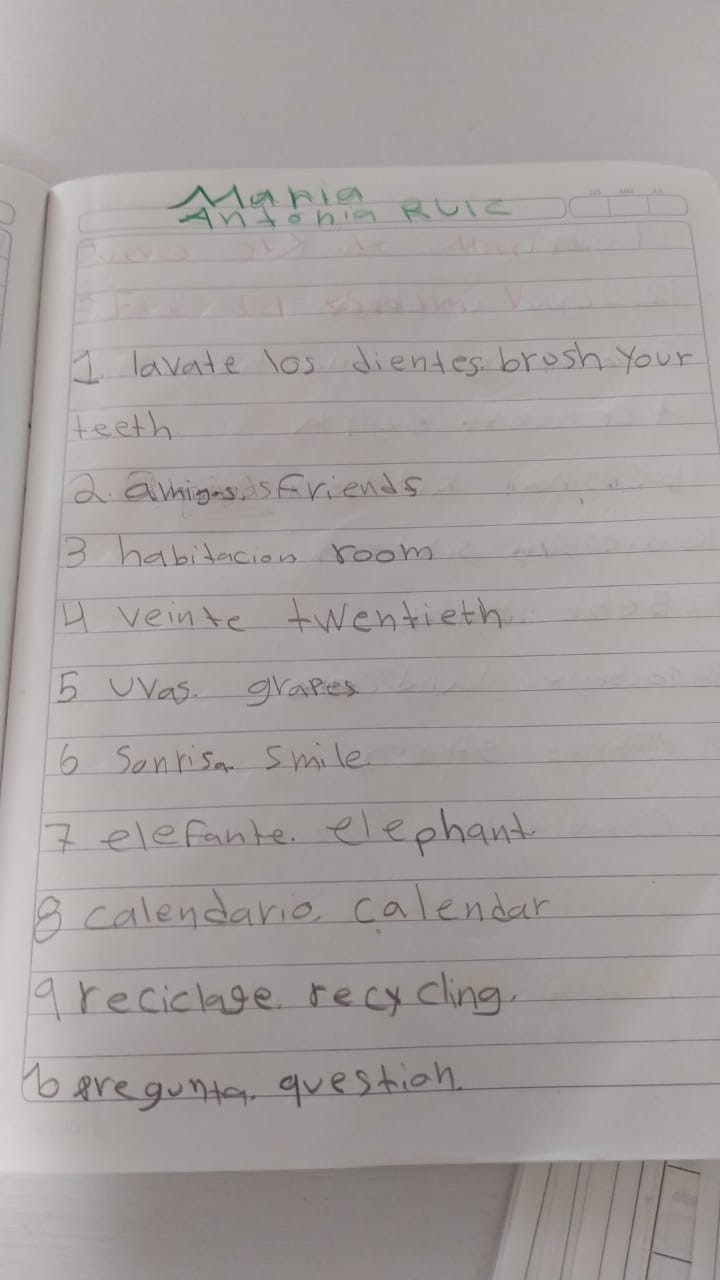 Maria
Antonia Ruiz
1 lavate los dientes. brosh Your
teeth
2. amigos. Friends
3 habitacion room
4 veinte twentieth
5 Uvas. grapes
6 Sonrisa smile.
7 elefante. elephant.
8 calendario. calendar
9 reciclage. recycling.
10 pregunta. question.